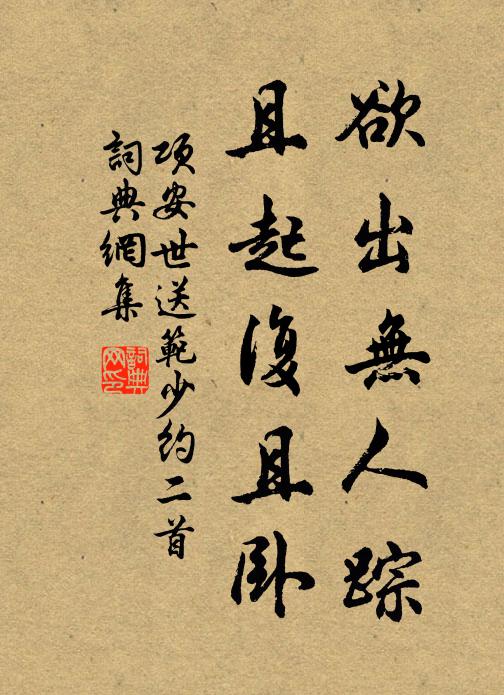 欲出無人踪
且起復且卧
項安世送範少約二首
詞典網集
詞典网印